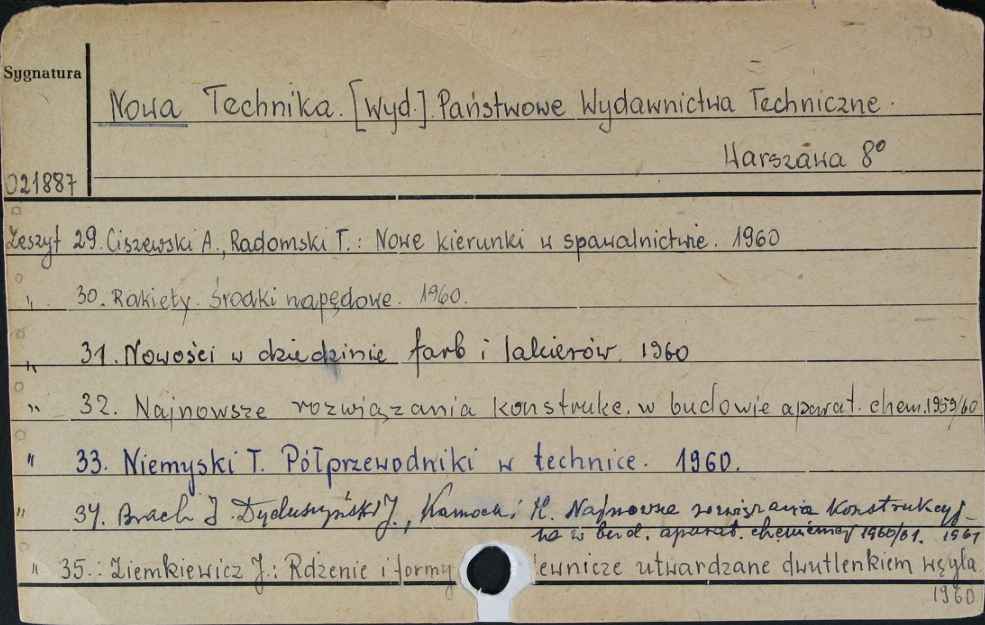 Sygnatura
Nowa Technika. [Wyd.] Państwowe Wydawnictwa Techniczne.
Warszawa 8°
021887
Zeszyt 29. Ciszewski A., Radomski T.: Nowe kierunki w spawalnictwie. 1960
" 30. Rakiety. Środki napędowe. 1960.
" 31. Nowości w dziedzinie farb i lakierów. 1960
" 32. Najnowsze rozwiązania konstrukc. w budowie aparat. chem. 1959/60
" 33. Niemyski T. Półprzewodniki w technice. 1960.
" 34. Brach J. Dyduszyński J., Kamocki H. Najnowsze rozwiązania konstrukcyj-
ne w bud. aparat. chemicznej 1960/61. 1961
" 35.: Ziemkiewicz J.: Rdzenie i formy ewnicze utwardzane dwutlenkiem węgla.
1960